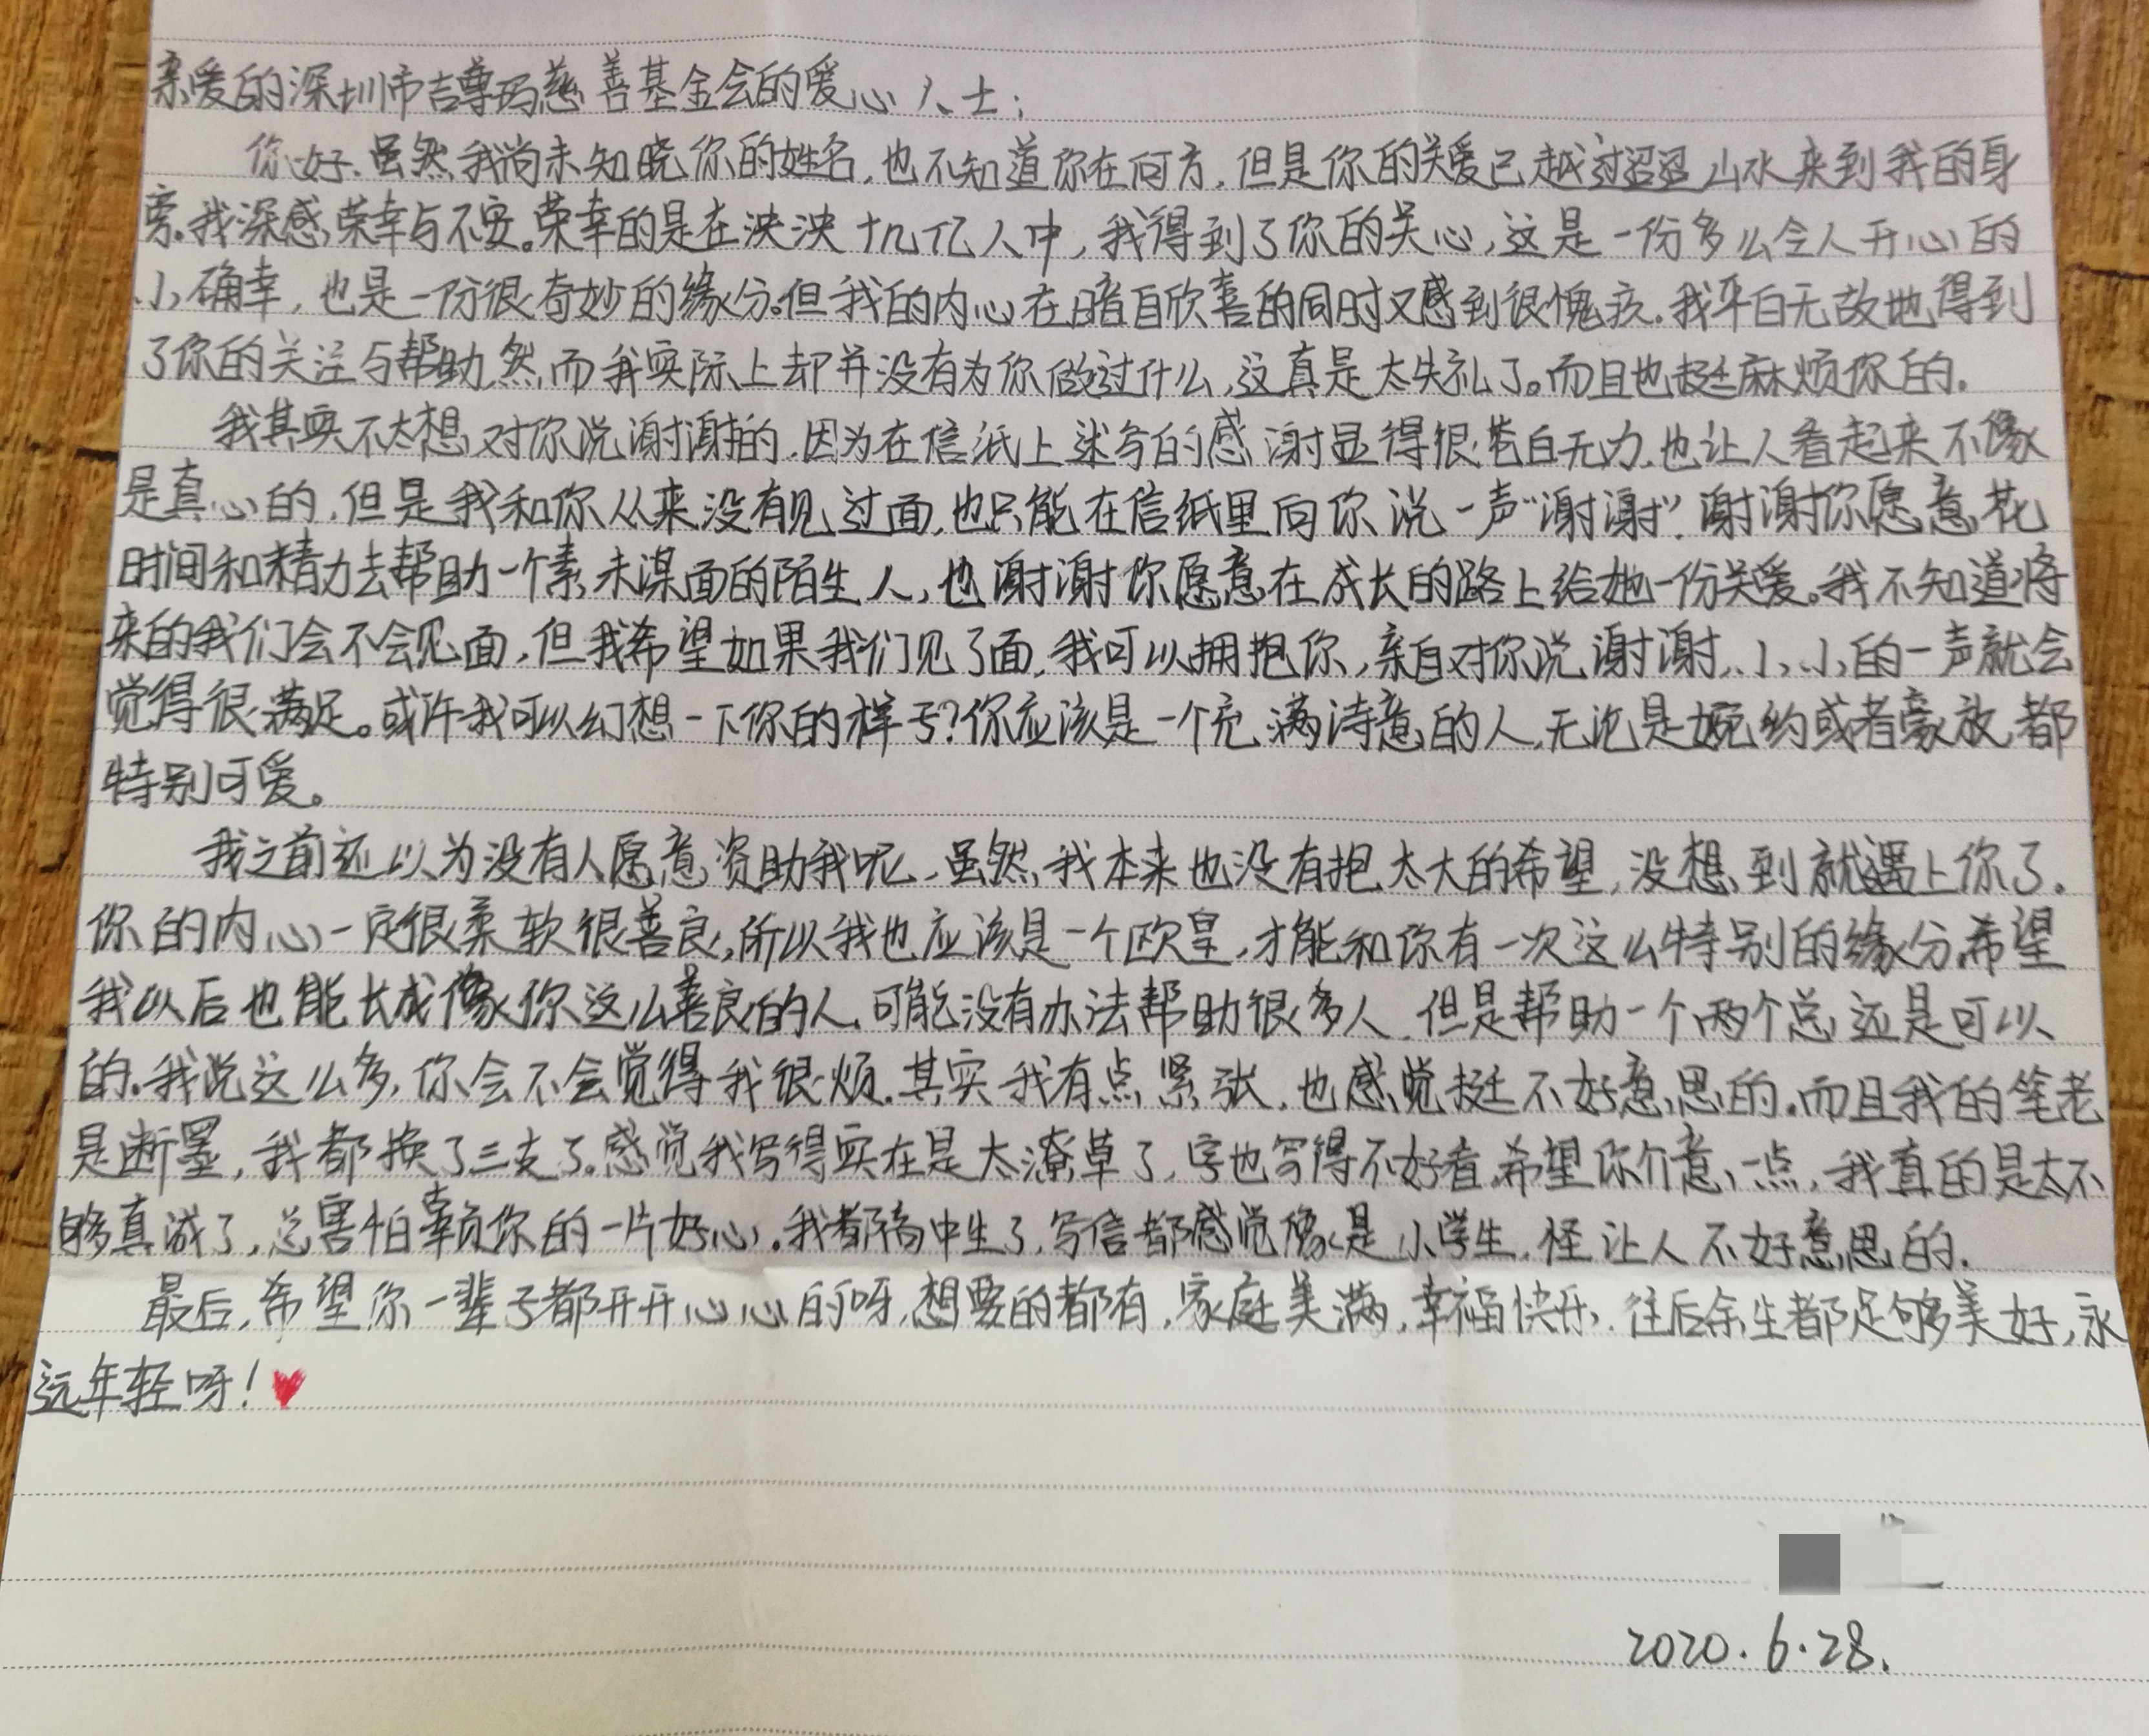 亲爱的深圳市吉尊玛慈善基金会的爱心人士：
你好.虽然我尚未知晓你的姓名,也不知道你在何方,但是你的关爱已越过迢迢山水来到我的身
旁.我深感荣幸与不安。荣幸的是在泱泱十几亿人中,我得到了你的关心,这是一份多么令人开心的
小确幸,也是一份很奇妙的缘分。但我的内心在暗自欣喜的同时又感到很愧疚.我平白无故地得到
了你的关注与帮助,然而我实际上却并没有为你做过什么,这真是太失礼了。而且也挺麻烦你的.
我其实不太想对你说谢谢的.因为在信纸上述写的感谢显得很苍白无力.也让人看起来不像
是真心的.但是我和你从来没有见过面,也只能在信纸里向你说一声“谢谢”.谢谢你愿意花
时间和精力去帮助一个素未谋面的陌生人,也谢谢你愿意在成长的路上给她一份关爱。我不知道将
来的我们会不会见面,但我希望如果我们见了面,我可以拥抱你,亲自对你说谢谢,小小的一声就会
觉得很满足。或许我可以幻想一下你的样子?你应该是一个充满诗意的人,无论是婉约或者豪放,都
特别可爱。
我之前还以为没有人愿意资助我呢,虽然我本来也没有抱太大的希望,没想到就遇上你了.
你的内心一定很柔软很善良,所以我也应该是一个欧皇,才能和你有一次这么特别的缘分.希望
我以后也能长成像你这么善良的人,可能没有办法帮助很多人.但是帮助一个两个总还是可以
的.我说这么多,你会不会觉得我很烦.其实我有点紧张,也感觉挺不好意思的.而且我的笔老
是断墨,我都换了三支了.感觉我写得实在是太潦草了,字也写得不好看,希望你介意一点,我真的是太不
够真诚了,总害怕辜负你的一片好心.我都高中生了,写信都感觉像是小学生,怪让人不好意思的.
最后,希望你一辈子都开开心心的呀,想要的都有,家庭美满,幸福快乐,往后余生都足够美好,永
远年轻呀!
2020.6.28.